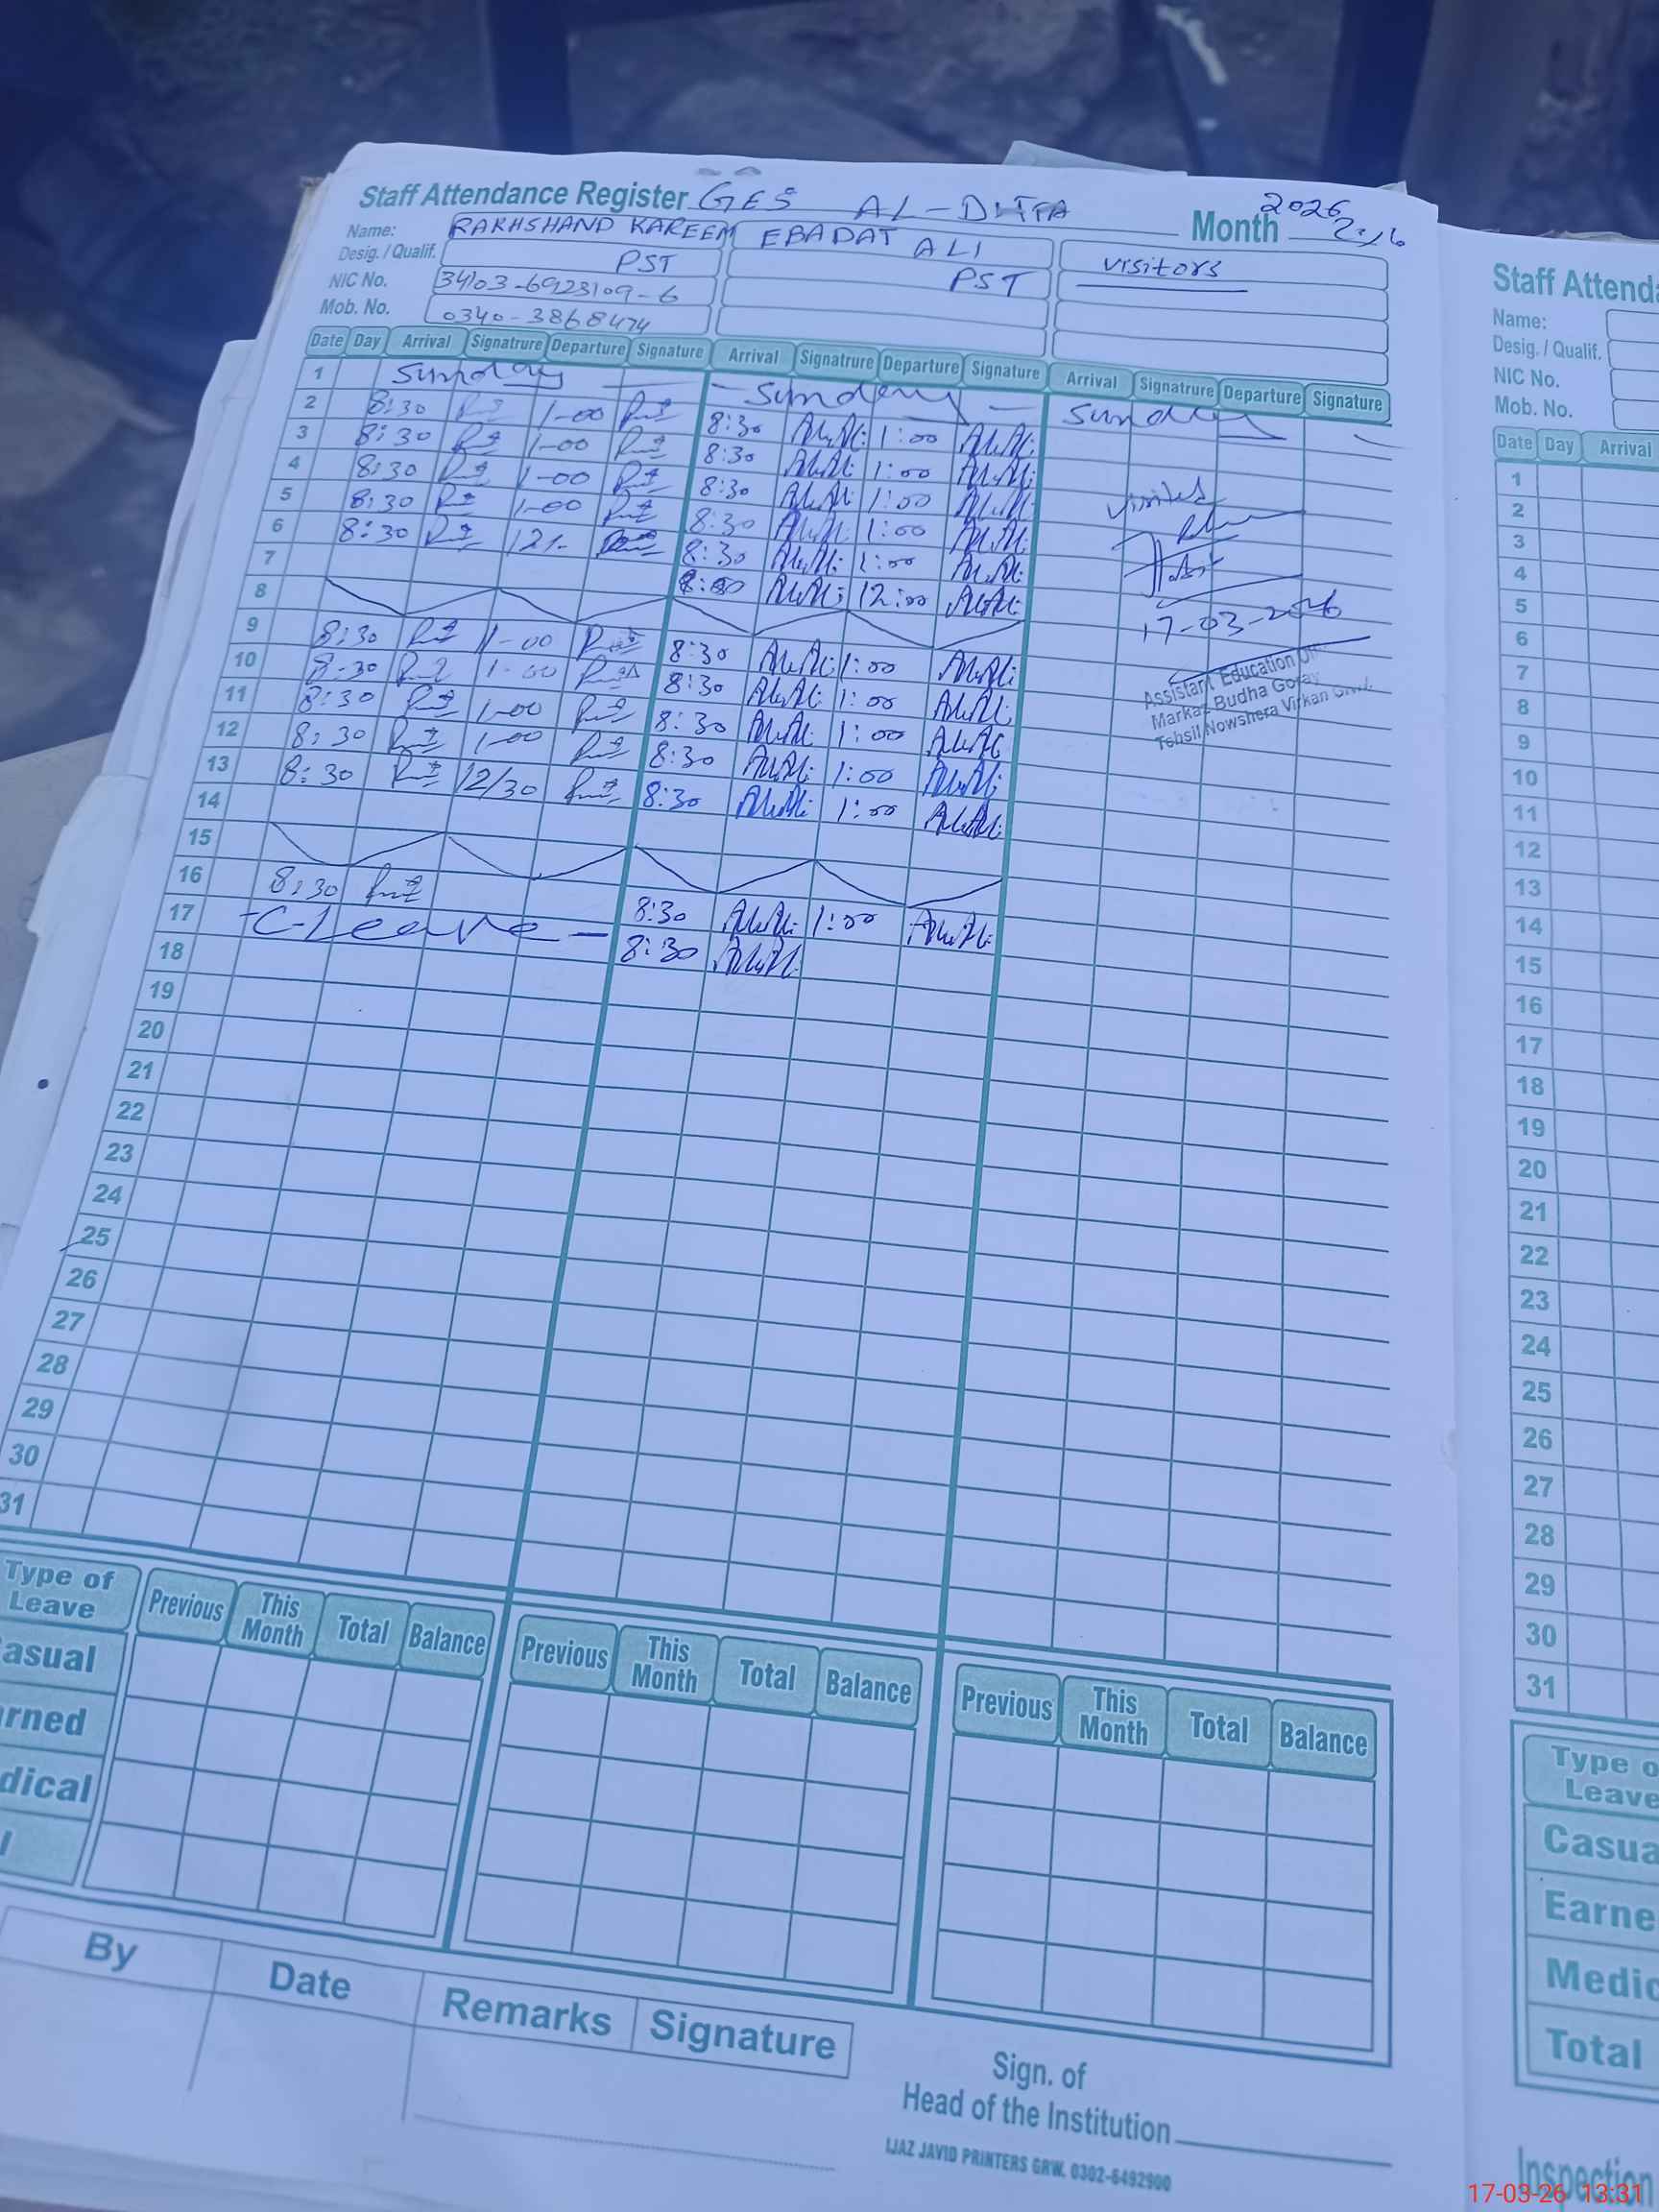 Staff Attendance Register GES AL-DITTA Month 2026
Name: RAKHSHAND KAREEM EBADAT ALI visitors
Desig. / Qualif. PST PST
NIC No. 34103-6923109-6
Mob. No. 0340-3868474
Date Day Arrival Signatrure Departure Signature Arrival Signatrure Departure Signature Arrival Signatrure Departure Signature
1 Sunday Sunday Sunday
2 8:30 1-00 8:30 1:00
3 8:30 1-00 8:30 1:00
4 8:30 1-00 8:30 1:00 visited
5 8:30 1-00 8:30 1:00
6 8:30 8:30 1:00
7 12:00
8 17-03-2026
9 8:30 1-00 8:30 1:00
10 8-30 1-00 8:30 1:00
11 8:30 1-00 8:30 1:00
12 8:30 1-00 8:30 1:00
13 8:30 12/30 8:30 1:00
14
15
16 8:30 8:30 1:00
17 -C-Leave- 8:30
18
19
20
21
22
23
24
25
26
27
28
29
30
31
Assistant Education
Markaz Budha Goray
Tehsil Nowshera Virkan
Type of Leave Previous This Month Total Balance Previous This Month Total Balance Previous This Month Total Balance
asual
rned
dical
l
By Date Remarks Signature
Sign. of
Head of the Institution
IJAZ JAVID PRINTERS GRW. 0302-6492900
Staff Attenda
Name:
Desig. / Qualif.
NIC No.
Mob. No.
Date Day Arrival
1
2
3
4
5
6
7
8
9
10
11
12
13
14
15
16
17
18
19
20
21
22
23
24
25
26
27
28
29
30
31
Type o
Leave
Casua
Earne
Medic
Total
Inspection
17-03-26 13:31